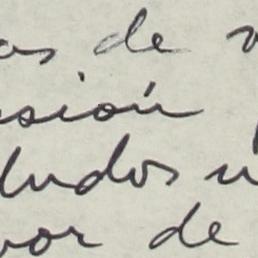 as de
sión
ludos
vor de